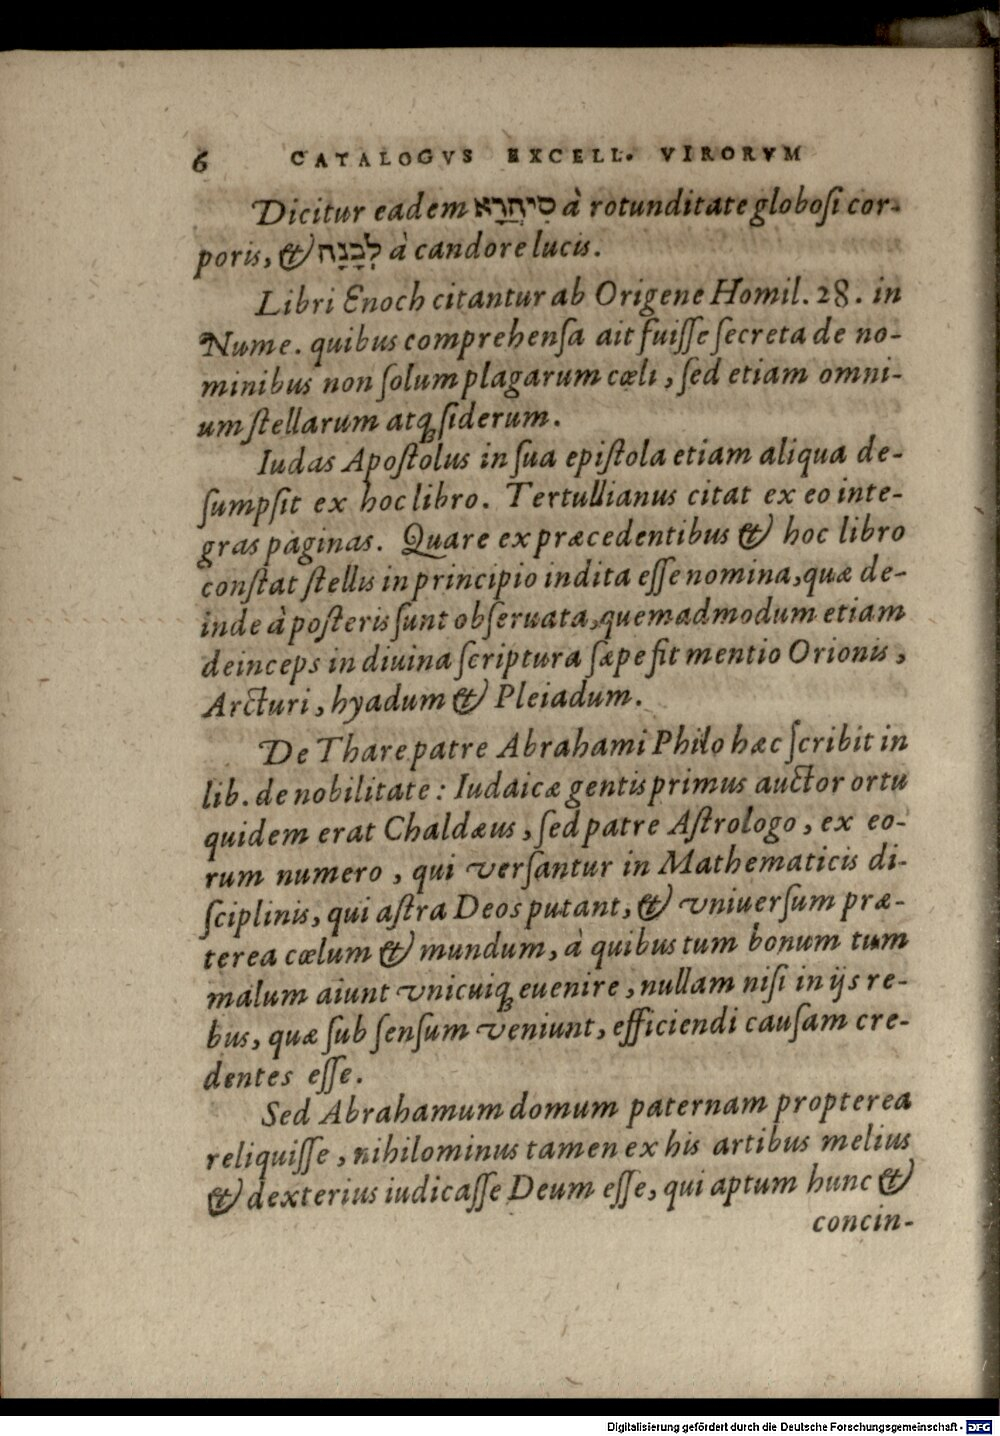 6 CATALOGVS EXCELL. VIRORVM
Dicitur eadem סִיהֲרָא à rotunditate globosi cor-
poris, & לְבָנָה à candore lucis.
Libri Enoch citantur ab Origene Homil. 28. in
Nume. quibus comprehenſa ait fuiſſe ſecreta de no-
minibus non ſolum plagarum cœli, ſed etiam omni-
um ſtellarum atqꝫ ſiderum.
Iudas Apoſtolus in ſua epiſtola etiam aliqua de-
ſumpſit ex hoc libro. Tertullianus citat ex eo inte-
gras paginas. Quare ex præcedentibus & hoc libro
conſtat ſtellis in principio indita eſſe nomina, quæ de-
inde à poſteris ſunt obſeruata, quemadmodum etiam
deinceps in diuina ſcriptura ſæpe fit mentio Orionis,
Arcturi, hyadum & Pleiadum.
De Thare patre Abrahami Philo hæc ſcribit in
lib. de nobilitate: Iudaicæ gentis primus auctor ortu
quidem erat Chaldæus, ſed patre Aſtrologo, ex eo-
rum numero, qui verſantur in Mathematicis di-
ſciplinis, qui aſtra Deos putant, & vniuerſum præ-
terea cœlum & mundum, à quibus tum bonum tum
malum aiunt vnicuiqꝫ euenire, nullam niſi in ijs re-
bus, quæ ſub ſenſum veniunt, efficiendi cauſam cre-
dentes eſſe.
Sed Abrahamum domum paternam propterea
reliquiſſe, nihilominus tamen ex his artibus melius
& dexterius iudicaſſe Deum eſſe, qui aptum hunc &
concin-
Digitalisierung gefördert durch die Deutsche Forschungsgemeinschaft - DFG